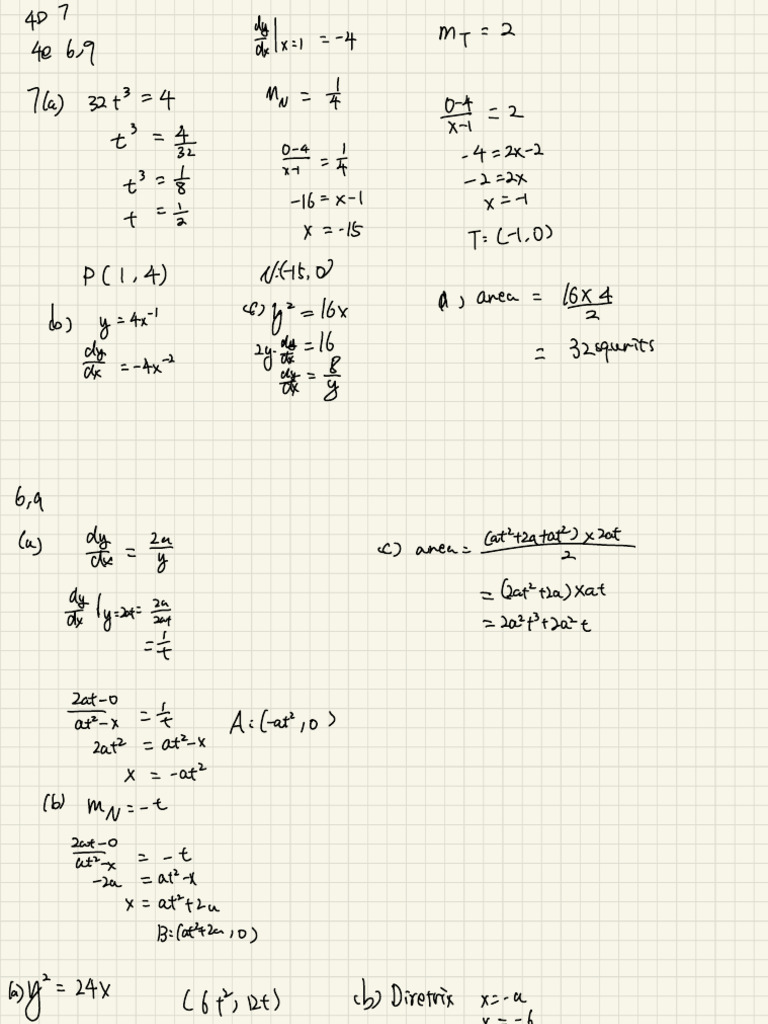 4D 7
4e 6,9
7(a) 32t³ = 4
t³ = 4/32
t³ = 1/8
t = 1/2
P(1,4)
b) y = 4x⁻¹
dy/dx = -4x⁻²
dy/dx |x=1 = -4
m_N = 1/4
0-4/x-1 = 1/4
-16 = x-1
x = -15
N:(-15,0)
(c) y² = 16x
2y·dy/dx = 16
dy/dx = 8/y
m_T = 2
0-4/x-1 = 2
-4 = 2x-2
-2 = 2x
x = -1
T: (-1,0)
d) area = 16×4/2
= 32 squnits
6,9
(a) dy/dx = 2a/y
dy/dx |y=2at = 2a/2at
= 1/t
2at-0/at²-x = 1/t
2at² = at²-x
x = -at²
A:(-at²,0)
(b) m_N = -t
2at-0/at²-x = -t
-2a = at²-x
x = at²+2a
B:(at²+2a,0)
(c) area = (at²+2a+at²)×2at/2
= (2at²+2a)×at
= 2a²t³+2a²t
(a) y² = 24x
(6t²,12t)
(b) Diretrix x=-a
x=-6